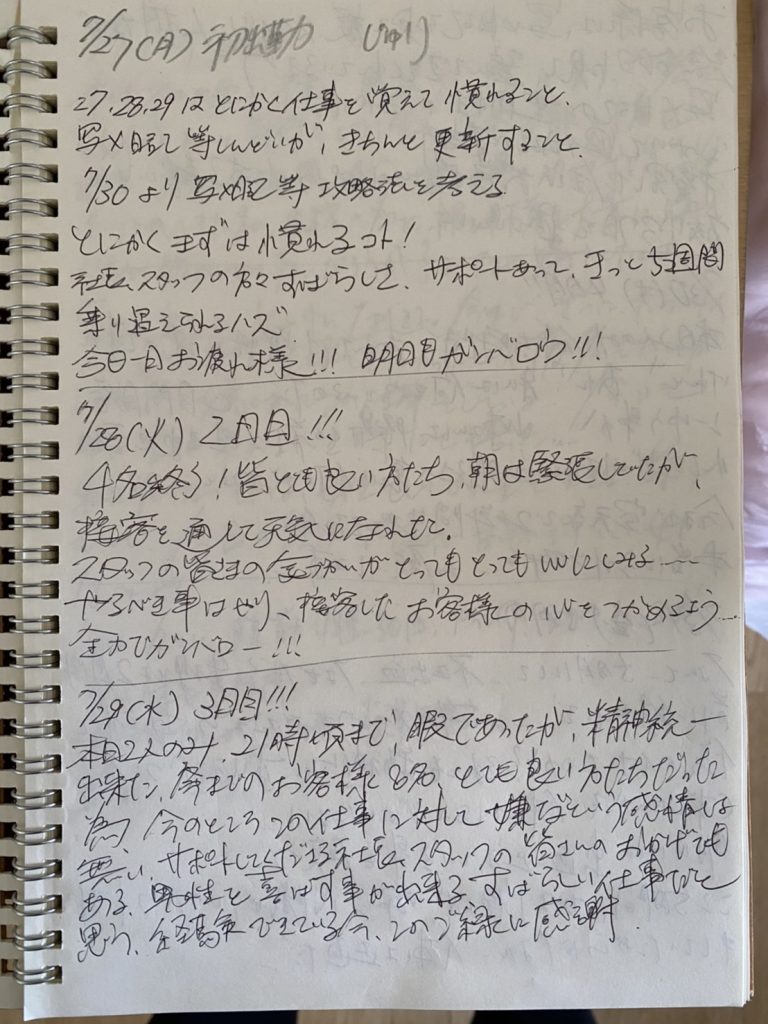 7/27(月) 初出勤 じゅり
27.28.29はとにかく仕事を覚えて慣れること、
写メ日記等しんどいが、きちんと更新すること、
7/30より写メ日記等攻略法を考える
とにかくまずは慣れるコト!
社長、スタッフの方々すばらしさ、サポートあって、きっと5週間
乗り越えられるハズ
今日一日お疲れ様!!! 明日もガンバロウ!!!
7/28(火) 2日目!!!
4名終了!皆とても良い方たち、朝は緊張していたが、
接客を通して元気になれた。
スタッフの皆さまの気づかいがとってもとっても心にしみる……
やるべき事はやり、接客したお客様の心をつかめるよう…
全力でガンバロー!!!
7/29(水) 3日目!!!
本日2人のみ、21時頃まで、暇であったが、精神統一
出来た、今までのお客様8名、とても良い方たちだった
為、今のところこの仕事に対して嫌などという感情は
無い、サポートしてくださる社長、スタッフの皆さんのおかげでも
ある、男性を喜ばす事が出来るすばらしい仕事だと
思う、経験できている今、このご縁に感謝